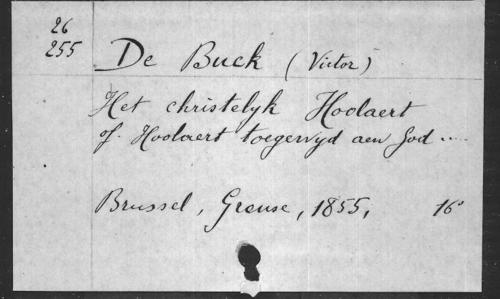 26
255
De Buck (Victor)
Het christelyk Hoolaert
of Hoolaert toegewyd aen God ....
Brussel, Greuse, 1855, 16°